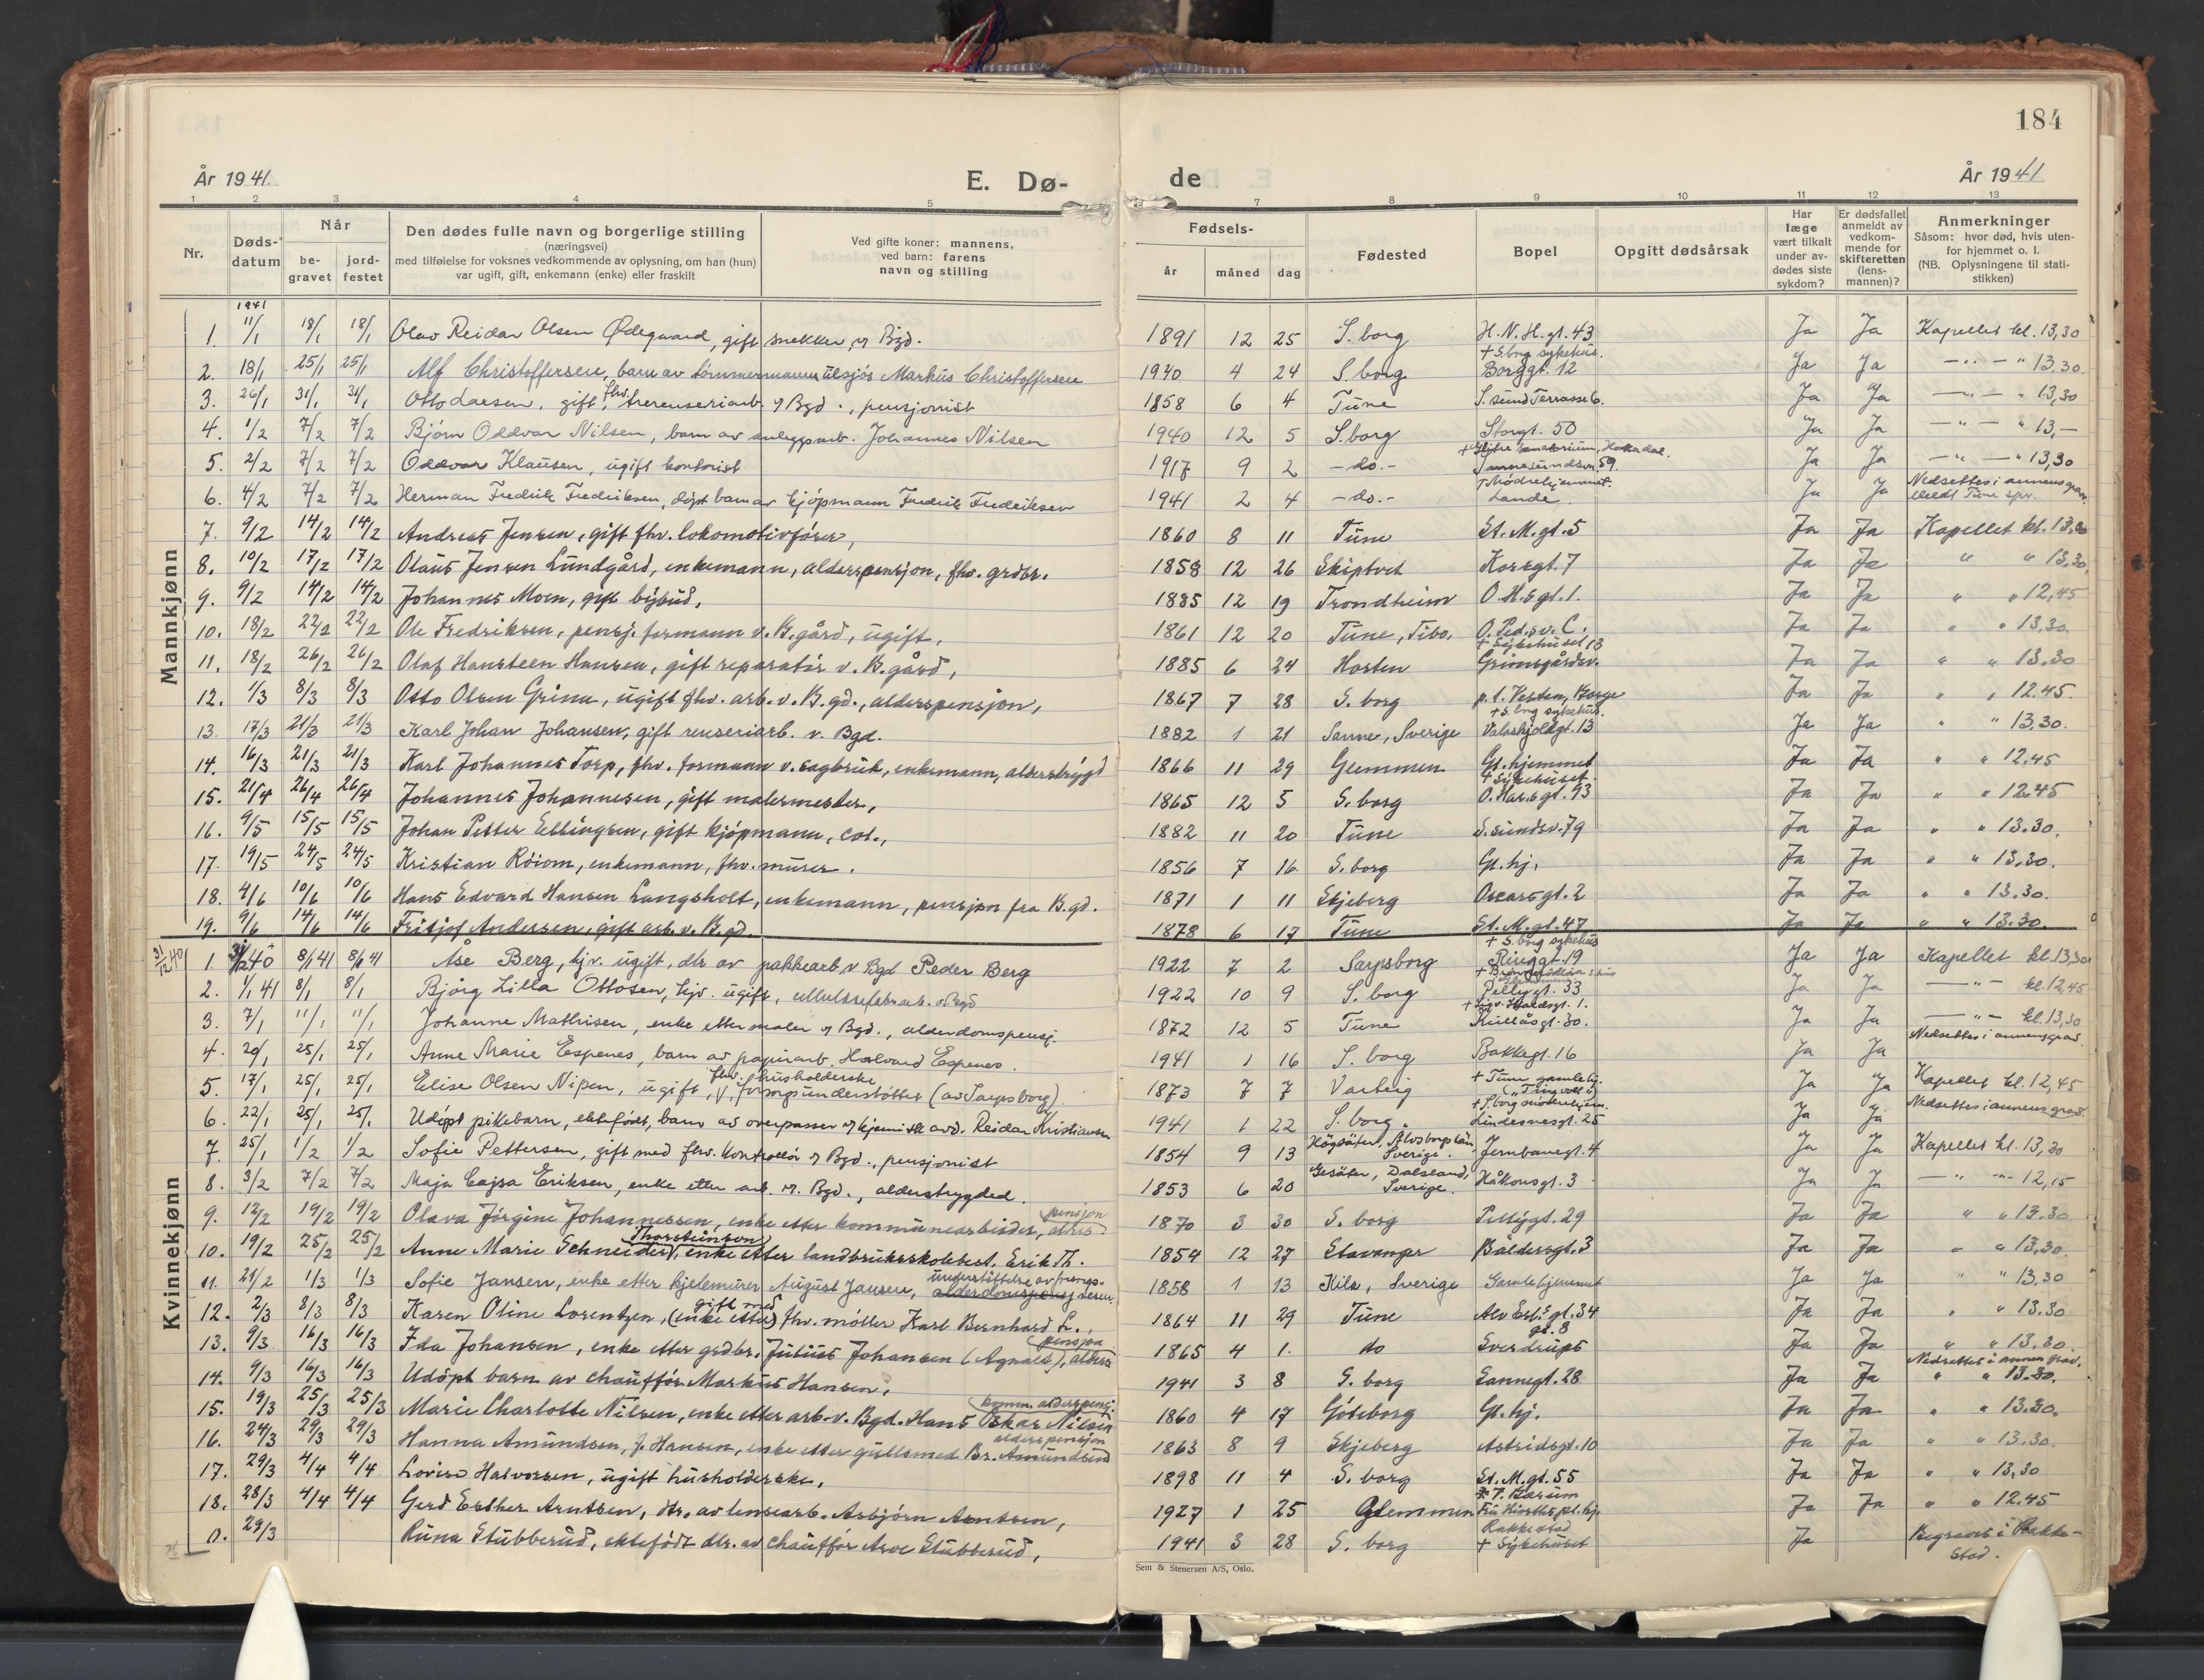 184
År 1941.
E. Dø-
de
År 1941
1 2 3 4 5 7 8 9 10 11 12 13
Nr.
Døds-datum
Når
be-gravet
jord-festet
Den dødes fulle navn og borgerlige stilling
(næringsvei)
med tilføielse for voksnes vedkommende av oplysning, om han (hun)
var ugift, gift, enkemann (enke) eller fraskilt
Ved gifte koner: mannens,
ved barn: farens
navn og stilling
Fødsels-
år måned dag
Fødested
Bopel
Opgitt dødsårsak
Har læge vært tilkalt under av-dødes siste sykdom?
Er dødsfallet anmeldt av vedkom-mende for skifteretten (lens-mannen)?
Anmerkninger
Såsom: hvor død, hvis uten-
for hjemmet o. l.
(NB. Oplysningene til stati-
stikken)
Mannkjønn
1941
1. 11/1 18/1 18/1 Olav Reidar Olsen Ødegaard, gift snekker, v Bgd. 1891 12 25 S. borg H.N.H.gt.43 Ja Ja Kapellet kl. 13,30
2. 18/1 25/1 25/1 Alf Christoffersen, barn av tømmermann utsjøs Markus Christoffersen 1940 4 24 S borg + S.borg sykehus. Borggt. 12 Ja Ja — " — " 13,30.
3. 26/1 31/1 31/1 Otto Larsen, gift, fhv. renseriarb. v Bgd., pensjonist 1858 6 4 Tune S.sund Terrasse 6. Ja Ja — " — " 13,30
4. 1/2 7/2 7/2 Bjørn Oddvar Nilsen, barn av anleggsarb. Johannes Nilsen 1940 12 5 S.borg Storgt. 50 Ja Ja — " — " 13,—
5. 2/2 7/2 7/2 Oddvar Klausen, ugift kontorist 1917 9 2 — do.— Ja Ja — " — " 13,30
6. 4/2 7/2 7/2 Herman Fredrik Fredriksen, døpt barn av kjøpmann Fredrik Fredriksen 1941 2 4 — do.— + Mødrehjemmet. Lande. Ja Ja Nedsettes i annens grav
7. 9/2 14/2 14/2 Andreas Jensen, gift fhv. lokomotivfører, 1860 8 11 Tune St. M.gt.5 Ja Ja Kapellet kl. 13,30
8. 10/2 17/2 17/2 Olaus Jensen Lundgård, enkemann, alderspensjon, fhv. grdbr. 1858 12 26 Skiptvet Korsgt. 7 Ja Ja " " 13,30,
9. 9/2 14/2 14/2 Johannes Moen, gift bybud, 1885 12 19 Trondheim O.H.sgt.1. Ja Ja " " 12,45
10. 18/2 22/2 22/2 Ole Fredriksen, pensj. formann v. B.gård, ugift, 1861 12 20 Tune, Tibo. O. Ped.sv. C. Ja Ja " " 13.30.
11. 18/2 26/2 26/2 Olaf Hansteen Hansen, gift reparatør v. B.gård, 1885 6 24 Horten + Sykehuset 13 Grimsgårdsv. Ja Ja " " 13.30
12. 1/3 8/3 8/3 Otto Olsen Grina, ugift fhv. arb. v. B.gd., alderspensjon, 1867 7 28 S. borg Ja Ja " " 12.45.
13. 17/3 21/3 21/3 Karl Johan Johansen, gift renseriarb. v. Bgd. 1882 1 21 Sanne, Sverige + S. borg sykehus. Valaskjoldgt. 13 Ja Ja " " 13,30.
14. 16/3 21/3 21/3 Karl Johannes Torp, fhv. formann v. sagbruk, enkemann, alderstrygd 1866 11 29 Glemmen Gl. hjemmet Ja Ja " " 12.45
15. 21/4 26/4 26/4 Johannes Johannesen, gift malermester, 1865 12 5 S. borg + Sykehuset. O. Har.s gt. 93 Ja Ja " " 12.45
16. 9/5 15/5 15/5 Johan Petter Ellingsen, gift kjøpmann, col., 1882 11 20 Tune S.sundsv. 79 Ja Ja " " 13.30.
17. 19/5 24/5 24/5 Kristian Röiom, enkemann, fhv. murer. 1856 7 16. S. borg Gl. hj. Ja Ja " " 13,30.
18. 4/6 10/6 10/6 Hans Edvard Hansen Langsholt, enkemann, pensjon fra B.gd. 1871 1 11 Skjeberg Oscarsgt. 2 Ja Ja " " 13.30.
19. 9/6 14/6 14/6 Fritjof Andersen, gift arb. v. B.gd. 1878 6 17 Tune St. M.gt. 47 Ja Ja " " 13.30.
Kvinnekjønn
31/12 40
1. 31/12 40 8/1 41 8/1 41 Åse Berg, hjv. ugift, dtr av pakkearb. v Bgd Peder Berg 1922 7 2 Sarpsborg + S. borg sykehus Ringgt. 19 Ja Ja Kapellet kl. 13,30
2. 1/1 41 8/1 8/1 Bjørg Lilla Ottosen, hjv. ugift, cellulosefabr.arb. v Bgd 1922 10 9 S. borg Pellygt. 33 Ja Ja — " — kl. 12,45
3. 7/1 11/1 11/1 Johanne Mathisen, enke etter maler v Bgd., alderdomspensj. 1872 12 5 Tune Kullåsgt. 30. Ja Ja — " — kl. 13,30
4. 20/1 25/1 25/1 Anne Marie Espenes, barn av papirarb. Halvard Espenes. 1941 1 16 S. borg Bakkegt. 16 Ja Ja Nedsettes i annens grav.
5. 17/1 25/1 25/1 Elise Olsen Nipen, ugift, fhv. husholderske, forsorgsunderstøttet (av Sarpsborg). 1873 7 7 Varteig + Tune gamlehj. Ja Ja Kapellet kl. 12,45
6. 22/1 25/1 25/1 Udöpt pikebarn, ektefødt, barn av overpasser v kjemisk avd. Reidar Kristiansen 1941 1 22 S. borg Lindesnesgt. 25 Ja Ja Nedsettes i annens grav.
7. 25/1 1/2 1/2 Sofie Pettersen, gift med fhv. kontrollør v Bgd., pensjonist 1854 9 13 Högsäter, Älvsborgslän, Sverige. Jernbanegt. 4 Ja Ja Kapellet kl. 13,30
8. 3/2 7/2 7/2 Maja Cajsa Eriksen, enke etter arb. v. Bgd., alderstrygded. 1853 6 20 Gesäter, Dalsland, Sverige. Håkonsgt. 3 Ja Ja — " — " — 12,15
9. 12/2 19/2 19/2 Olava Jørgine Johannessen, enke etter kommunearbeider, alders-pensjon 1870 3 30 S. borg Pellygt. 29 Ja Ja " " 13.30
10. 19/2 25/2 25/2 Anne Marie Schneider (Thorsteinson), enke etter landbruksskolebest. Erik Th. 1854 12 27 Stavanger Baldersgt. 3 Ja Ja " " 13,30.
11. 21/2 1/3 1/3 Sofie Jansen, enke etter kjelemurer August Jansen, understøttelse av 1858 1 13 Kila, Sverige Gamlehjemmet Ja Ja " " 13,30
12. 2/3 8/3 8/3 Karen Oline Lorentzen, (enke etter) gift med fhv. møller Karl Bernhard L., 1864 11 29 Tune Alv Erl.s gt. 34 Ja Ja " " 13.30
13. 9/3 16/3 16/3 Ida Johansen, enke etter grdbr. Julius Johansen (Agnalt), alders pensjon 1865 4 1. do Sverdrups gt. 8 Ja Ja " " 13.30.
14. 9/3 16/3 16/3 Udöpt barn av chauffør Markus Hansen. 1941 3 8 S. borg Sannegt. 28 Ja Ja Nedsettes i annen grav. " " 13.30.
15. 19/3 25/3 25/3 Marie Charlotte Nilsen, enke etter arb. v. Bgd. Hans Oskar Nilsen komm. alderspensj. 1860 4 17 Göteborg Gl. hj. Ja Ja " " 13.30.
16. 24/3 29/3 29/3 Hanna Amundsen, f. Hansen, enke etter gullsmed Br. Amundsen alderspensjon 1863 8 9 Skjeberg Astridsgt. 10 Ja Ja " " 13.30.
17. 29/3 4/4 4/4 Lovise Halvorsen, ugift husholderske, 1898 11 4 S. borg St. M. gt. 55 Ja Ja " " 13,30
18. 28/3 4/4 4/4 Gerd Esther Arntsen, dtr. av lensearb. Asbjørn Arntsen, 1927 1 25 Glemmen + V. Bærum Fru Hiorths pl. hj. Ja Ja " " 12.45
0. 29/3 Runa Stubberud, ektefødt dtr. av chauffør Arve Stubberud, 1941 3 28 S. borg Rakkestad + Sykehuset Ja Begraves i Rakke-
stad.
Sem & Stenersen A/S, Oslo.